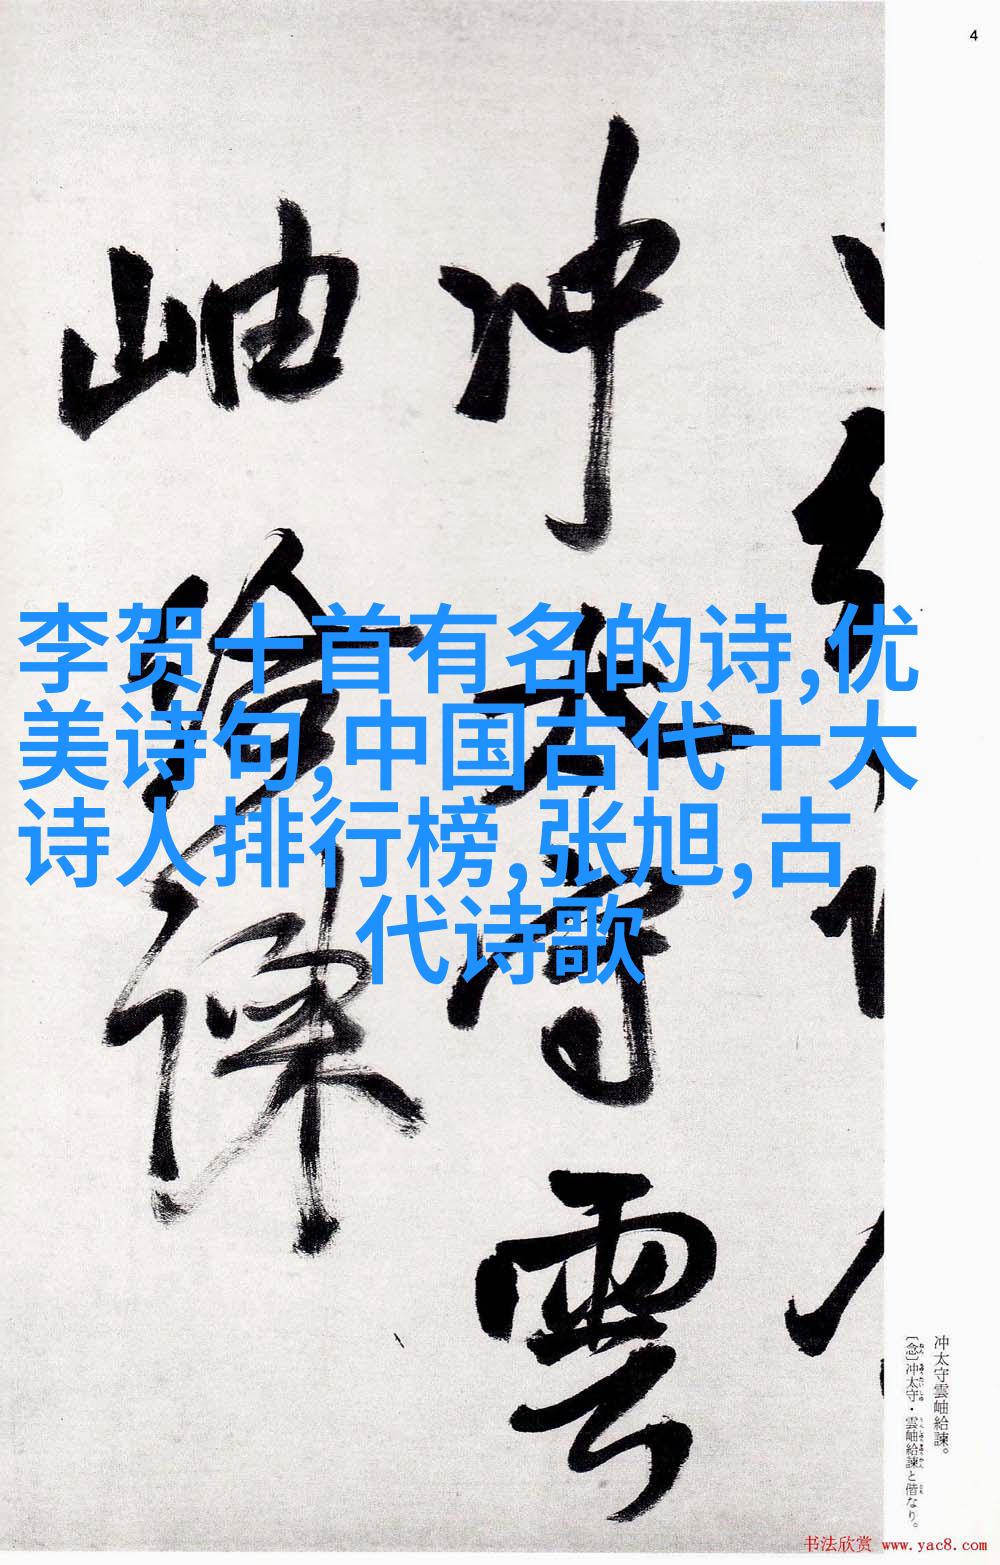 4
冲太守雲
岫給諫
李贺十首有名的诗,优
美诗句,中国古代十大
诗人排行榜,张旭,古
代诗歌
冲太守雲岫給諫。
〔念〕冲太守・雲岫給諫と偕なり。
书法欣赏 www.yac8.com